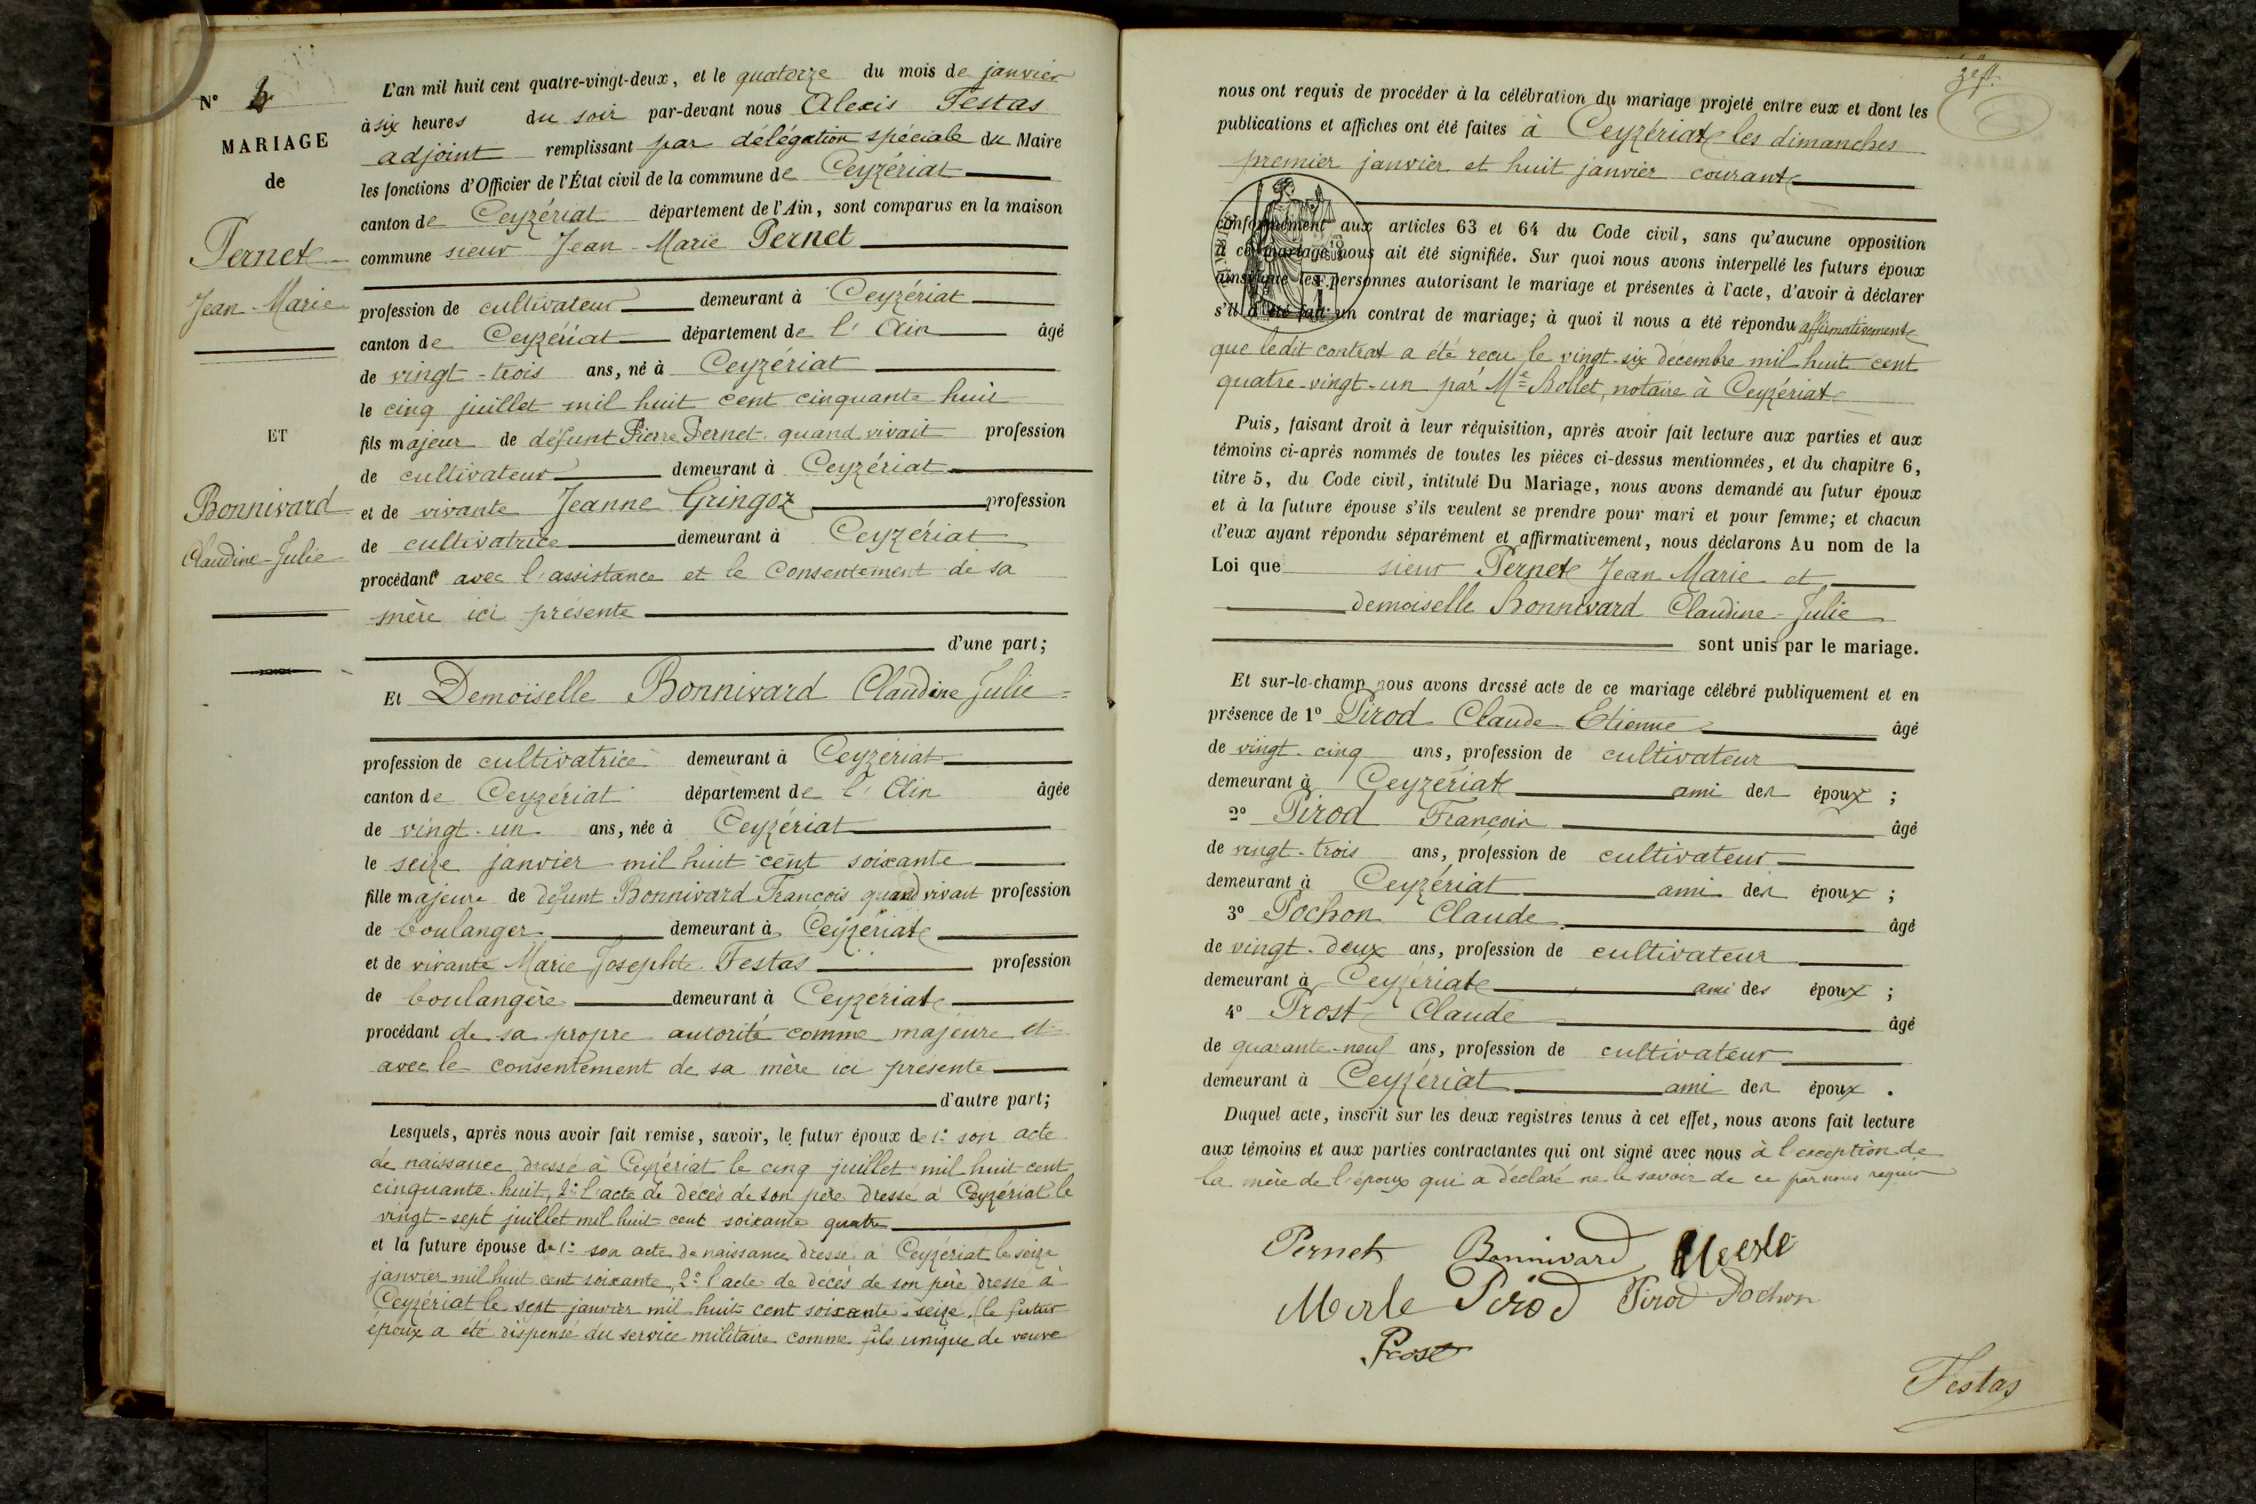 N° 4
MARIAGE
de
Pernet
Jean-Marie
ET
Bonnivard
Claudine-Julie
L'an mil huit cent quatre-vingt-deux, et le quatorze du mois de janvier
à six heures du soir par-devant nous Alexis Festas
adjoint remplissant par délégation spéciale du Maire
les fonctions d'Officier de l'État civil de la commune de Ceyzériat
canton de Ceyzériat département de l'Ain, sont comparus en la maison
commune sieur Jean-Marie Pernet
profession de cultivateur demeurant à Ceyzériat
canton de Ceyzériat département de l'Ain âgé
de vingt-trois ans, né à Ceyzériat
le cinq juillet mil huit cent cinquante huit
fils majeur de défunt Pierre Pernet quand vivait profession
de cultivateur demeurant à Ceyzériat
et de vivante Jeanne Gringoz profession
de cultivatrice demeurant à Ceyzériat
procédant avec l'assistance et le consentement de sa
mère ici présente
d'une part;
Et Demoiselle Bonnivard Claudine Julie
profession de cultivatrice demeurant à Ceyzériat
canton de Ceyzériat département de l'Ain âgée
de vingt-un ans, née à Ceyzériat
le seize janvier mil huit cent soixante
fille majeure de défunt Bonnivard François quand vivait profession
de boulanger demeurant à Ceyzériat
et de vivante Marie Josephte Festas profession
de boulangère demeurant à Ceyzériat
procédant de sa propre autorité comme majeure et
avec le consentement de sa mère ici présente
d'autre part;
Lesquels, après nous avoir fait remise, savoir, le futur époux de 1° son acte
de naissance dressé à Ceyzériat le cinq juillet mil huit cent
cinquante-huit, 2° l'acte de décès de son père dressé à Ceyzériat le
vingt-sept juillet mil huit cent soixante quatre
et la future épouse de 1° son acte de naissance dressé à Ceyzériat le seize
janvier mil huit cent soixante, 2° l'acte de décès de son père dressé à
Ceyzériat le sept janvier mil huit cent soixante-seize. (le futur
époux a été dispensé du service militaire comme fils unique de veuve
nous ont requis de procéder à la célébration du mariage projeté entre eux et dont les
publications et affiches ont été faites à Ceyzériat les dimanches
premier janvier et huit janvier courant
conformément aux articles 63 et 64 du Code civil, sans qu'aucune opposition
à ce mariage nous ait été signifiée. Sur quoi nous avons interpellé les futurs époux
ainsi que les personnes autorisant le mariage et présentes à l'acte, d'avoir à déclarer
s'il a été fait un contrat de mariage; à quoi il nous a été répondu affirmativement
que ledit contrat a été reçu le vingt-six décembre mil huit cent
quatre-vingt-un par Me Bollet, notaire à Ceyzériat
Puis, faisant droit à leur réquisition, après avoir fait lecture aux parties et aux
témoins ci-après nommés de toutes les pièces ci-dessus mentionnées, et du chapitre 6,
titre 5, du Code civil, intitulé Du Mariage, nous avons demandé au futur époux
et à la future épouse s'ils veulent se prendre pour mari et pour femme; et chacun
d'eux ayant répondu séparément et affirmativement, nous déclarons Au nom de la
Loi que sieur Pernet Jean Marie et
demoiselle Bonnivard Claudine-Julie
sont unis par le mariage.
Et sur-le-champ nous avons dressé acte de ce mariage célébré publiquement et en
présence de 1° Pirod Claude Etienne âgé
de vingt-cinq ans, profession de cultivateur
demeurant à Ceyzériat ami des époux ;
2° Pirod François âgé
de vingt-trois ans, profession de cultivateur
demeurant à Ceyzériat ami des époux ;
3° Pochon Claude âgé
de vingt-deux ans, profession de cultivateur
demeurant à Ceyzériat ami des époux ;
4° Prost Claude âgé
de quarante-neuf ans, profession de cultivateur
demeurant à Ceyzériat ami des époux .
Duquel acte, inscrit sur les deux registres tenus à cet effet, nous avons fait lecture
aux témoins et aux parties contractantes qui ont signé avec nous à l'exception de
la mère de l'époux qui a déclaré ne le savoir de ce par nous requis
Pernet Bonnivard
Merle Pirod Pirod Pochon
Prost
Festas